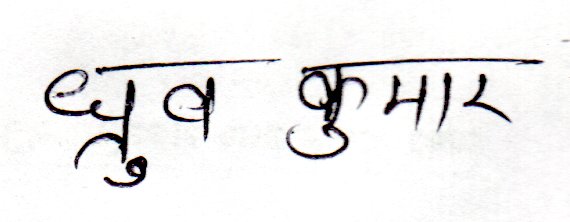 ध्रुव कुमार